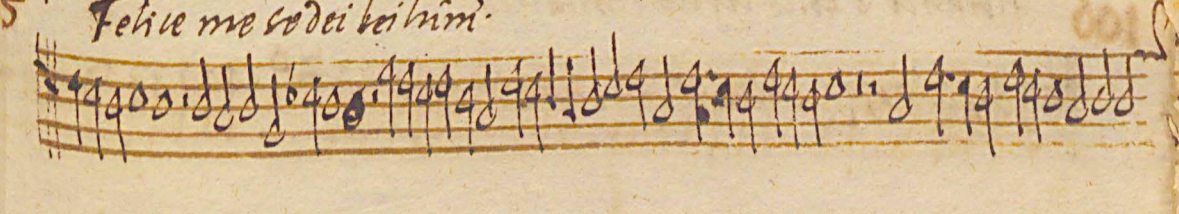 Felice me se dei bei lumi